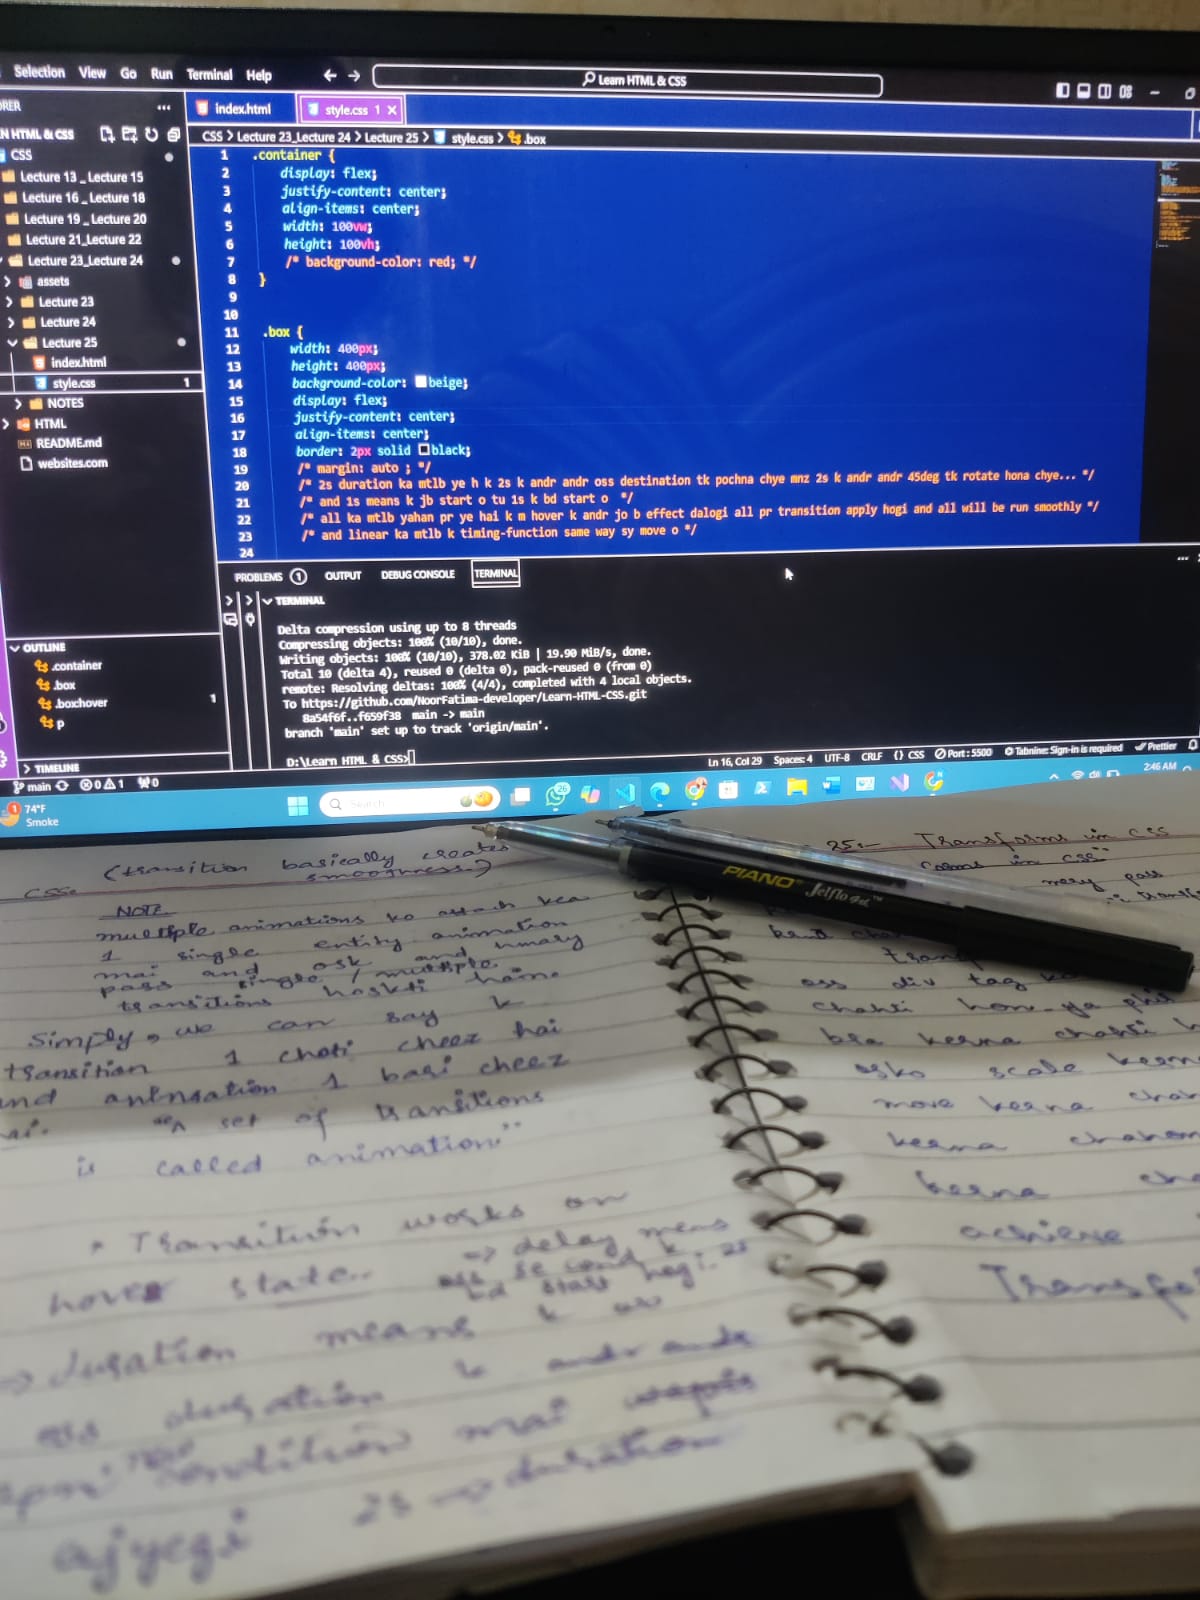 Selection View Go Run Terminal Help
Learn HTML & CSS
ORER
N HTML & CSS
CSS
Lecture 13 _ Lecture 15
Lecture 16 _ Lecture 18
Lecture 19 _ Lecture 20
Lecture 21_Lecture 22
Lecture 23_Lecture 24
assets
Lecture 23
Lecture 24
Lecture 25
index.html
style.css 1
NOTES
HTML
README.md
websites.com
OUTLINE
.container
.box
.boxhover 1
p
TIMELINE
index.html style.css 1
CSS > Lecture 23_Lecture 24 > Lecture 25 > style.css > .box
1 .container {
2 display: flex;
3 justify-content: center;
4 align-items: center;
5 width: 100vw;
6 height: 100vh;
7 /* background-color: red; */
8 }
9
10
11 .box {
12 width: 400px;
13 height: 400px;
14 background-color: beige;
15 display: flex;
16 justify-content: center;
17 align-items: center;
18 border: 2px solid black;
19 /* margin: auto ; */
20 /* 2s duration ka mtlb ye h k 2s k andr andr oss destination tk pochna chye mnz 2s k andr andr 45deg tk rotate hona chye... */
21 /* and 1s means k jb start o tu 1s k bd start o */
22 /* all ka mtlb yahan pr ye hai k m hover k andr jo b effect dalogi all pr transition apply hogi and all will be run smoothly */
23 /* and linear ka mtlb k timing-function same way sy move o */
24
PROBLEMS 1 OUTPUT DEBUG CONSOLE TERMINAL
TERMINAL
Delta compression using up to 8 threads
Compressing objects: 100% (10/10), done.
Writing objects: 100% (10/10), 378.02 KiB | 19.90 MiB/s, done.
Total 10 (delta 4), reused 0 (delta 0), pack-reused 0 (from 0)
remote: Resolving deltas: 100% (4/4), completed with 4 local objects.
To https://github.com/NoorFatima-developer/Learn-HTML-CSS.git
8a54f6f..f659f38 main -> main
branch 'main' set up to track 'origin/main'.
D:\Learn HTML & CSS>
main 0 1 0 Ln 16, Col 29 Spaces: 4 UTF-8 CRLF {} CSS Port : 5500 Tabnine: Sign-in is required Prettier
1 74°F
Smoke
Search
26
2:46 AM
(transition basically creates
smoothness.)
CSS
NOTE
multiple animations ko attach
1 single entity animation
mai and osk and
pass single / multiple
transitions hoskti
Simply, we can say k
transition 1 choti cheez hai
and 1 bari cheez
"A set of transitions
is called animation."
Transition works on
hover state..
=> delay
start hogi. 2s
-> duration means k us
duration k andr andr
condition mai
ajyegi 2s -> duration
PIANO Jelflo Gel
25.- Transforms in CSS
in CSS"
pass
oss div tag
chahti hon ya phir
kerna chahti
osko scale
move kerna
kerna
kerna
achieve